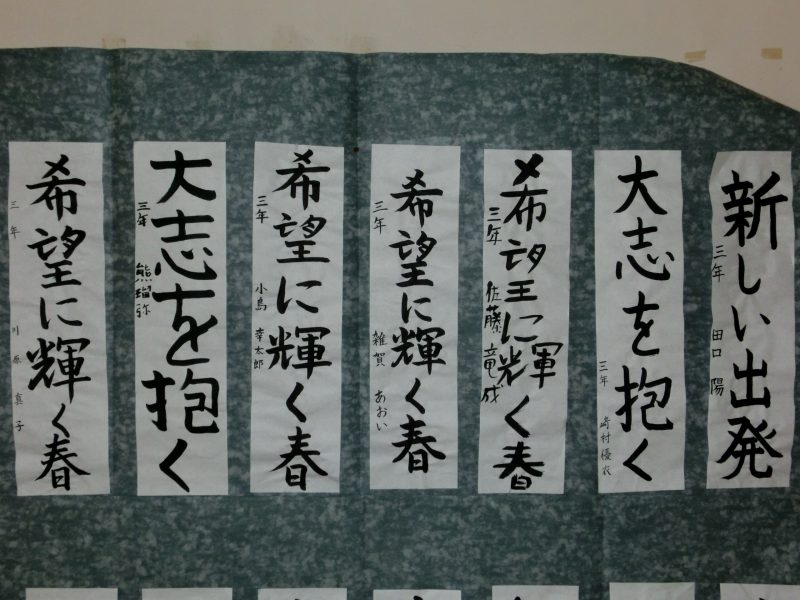 新しい出発
三年 田口 陽
大志を抱く
三年 﨑村優衣
希望に輝く春
三年 佐藤竜成
希望に輝く春
三年 雑賀 あおい
希望に輝く春
三年 小島 幸太郎
大志を抱く
三年 熊瑠弥
希望に輝く春
三年 川原真子